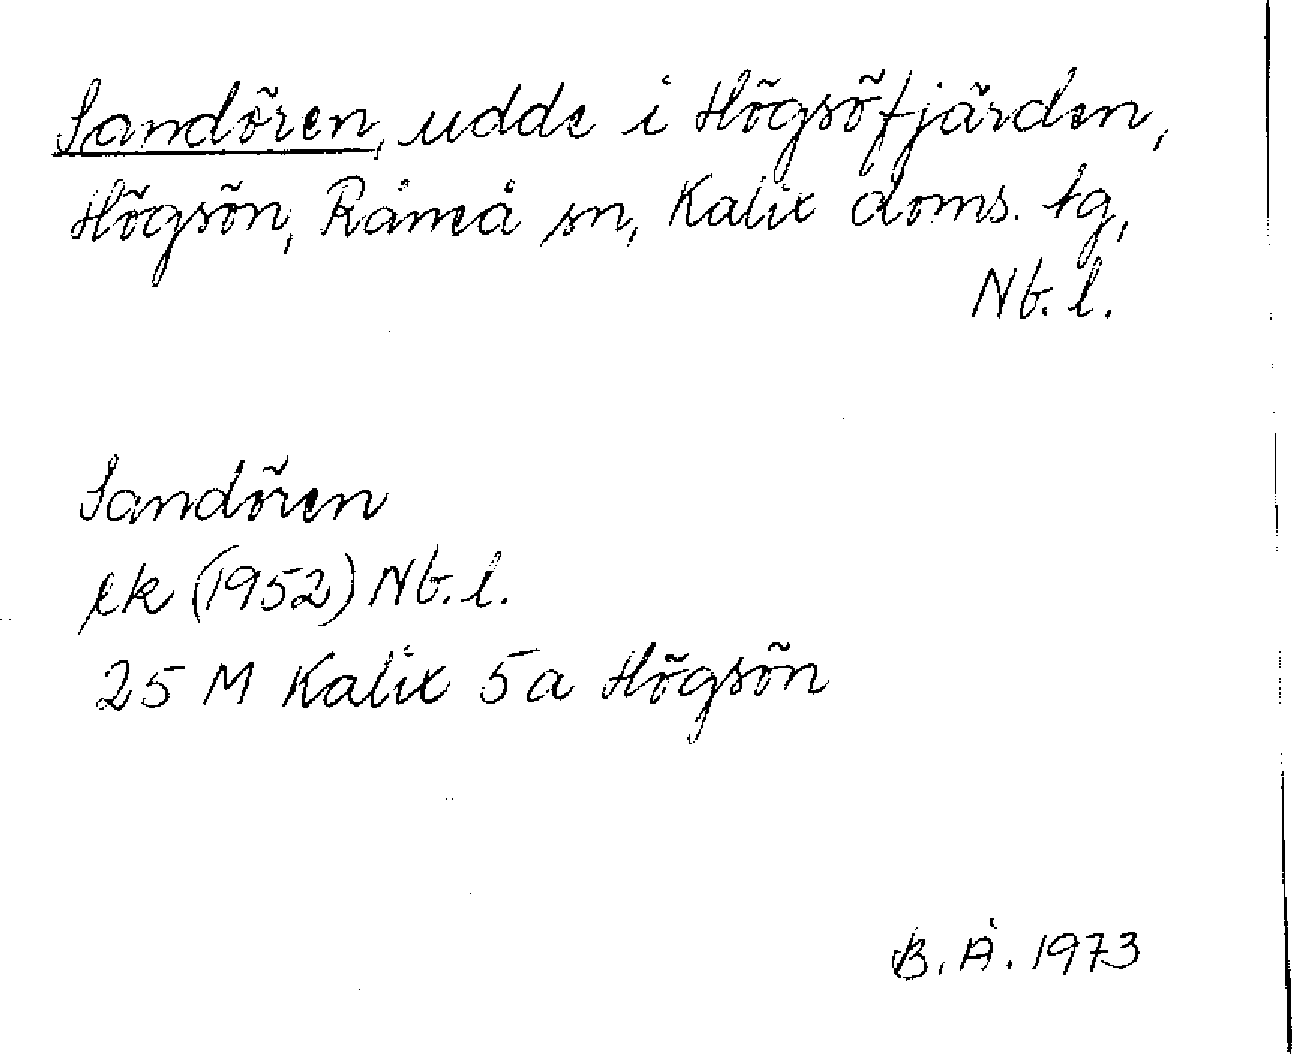 Sandören, udde i Högsöfjärden,
Högsön, Råneå sn, Kalix doms. tg,
Nb. l.
Sandören
ek (1952) Nb. l.
25 M Kalix 5a Högsön
B. Å. 1973